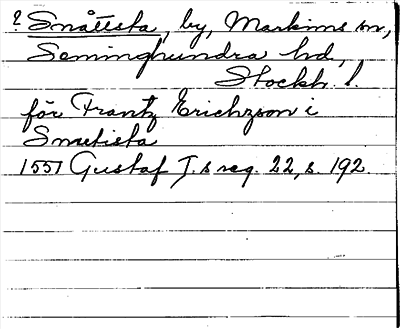 ? Snåttsta, by, Markims sn,
Seminghundra hd,
Stockh. l.
för Frantz Erichzson i
Smetista
1551 Gustaf I.s reg. 22, s. 192.